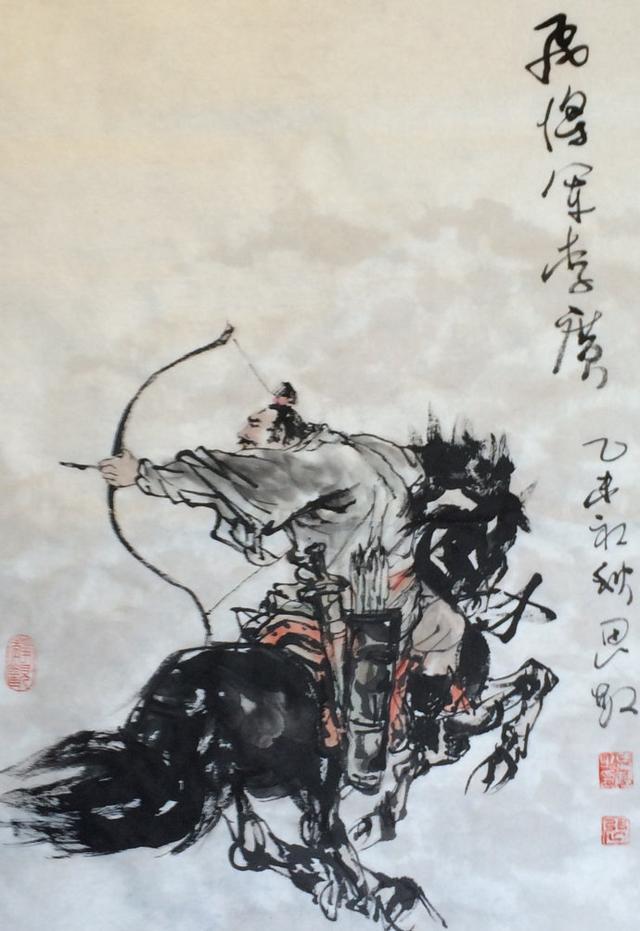 飛將軍李廣
乙未初秋思